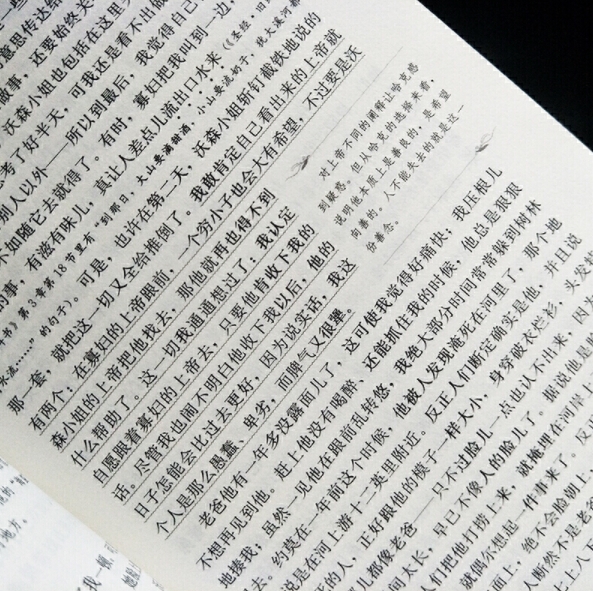 意思传达给
做事，还要始终关
沃森小姐也包括在这里
考了好半天，可我还是看不出做
别人以外——所以到最后，我觉得自己
不如随它去就得了。有时，寡妇把我叫到一边，
的事，有滋有味儿，真让人差点儿流出口水来（《圣经·旧
书》第3章第18节里有“到那日，大山要滴甜酒，小山要流奶子，犹大溪河都
水流……”的句子）。可是，也许在第二天，沃森小姐斩钉截铁地说的
那一套，就把这一切又全给推倒了。我敢肯定自己看出来的上帝就
有两个，在寡妇的上帝跟前，一个穷小子也会大有希望，不过要是沃
森小姐的上帝把他找去，那他就再也得不到
什么帮助了。这一切我通通想过了：我认定
自愿跟着寡妇的上帝去，只要他肯收下我的
话。尽管我也闹不明白他收下我以后，他的
日子怎能会比过去更好，因为说实话，我这
个人是那么愚蠢、卑劣，而脾气又很犟。
对上帝不同的阐释让哈克感
到疑惑，但从哈克的选择来看，
说明他本质上是善良的，是希望
向善的。人不能失去的就是这一
份善念。
老爸他有一年多没露面儿了，这可使我觉得好痛快；我压根儿
不想再见到他。赶上他没有喝醉、还能抓住我的时候，他总是狠狠
地揍我，虽然一见他在眼前乱转悠，我绝大部分时间常常躲到树林
去。约莫在一年前这个时候，他被人发现淹死在河里了，那个地
说是在河上游十二英里附近。反正人们断定确实是他，并且说
死的人，正好跟他的模子一样大小，身穿破衣烂衫，头发
儿都像老爸——只不过脸儿一点也认不出来，因为
间太长，早已不像人的脸儿了。据说他是
人们把他打捞上来，就掩埋在河岸上
就偶尔想起一件事来了。
面上，绝不会脸朝上，
人断然不是老爸
七上八下